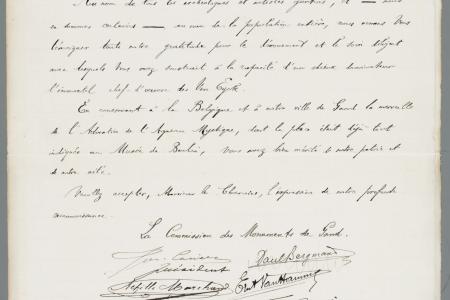 Au nom de tous les archéologues et artistes gantois, et — nous
en sommes certains — au nom de la population entière, nous venons Vous
témoigner toute notre gratitude pour le dévouement et le soin diligent
avec lesquels Vous avez soustrait à la rapacité d'un odieux envahisseur
l'immortel chef d'œuvre des Van Eyck.
En conservant à la Belgique et à notre ville de Gand la merveille
de l'Adoration de l'Agneau Mystique, dont la place était déjà tout
indiquée au Musée de Berlin, vous avez bien mérité de notre patrie et
de notre cité.
Veuillez accepter, Monsieur le Chanoine, l'expression de notre profonde
reconnaissance.
La Commission des Monuments de Gand.
Paul Bergmans
Président
Achille Marchand